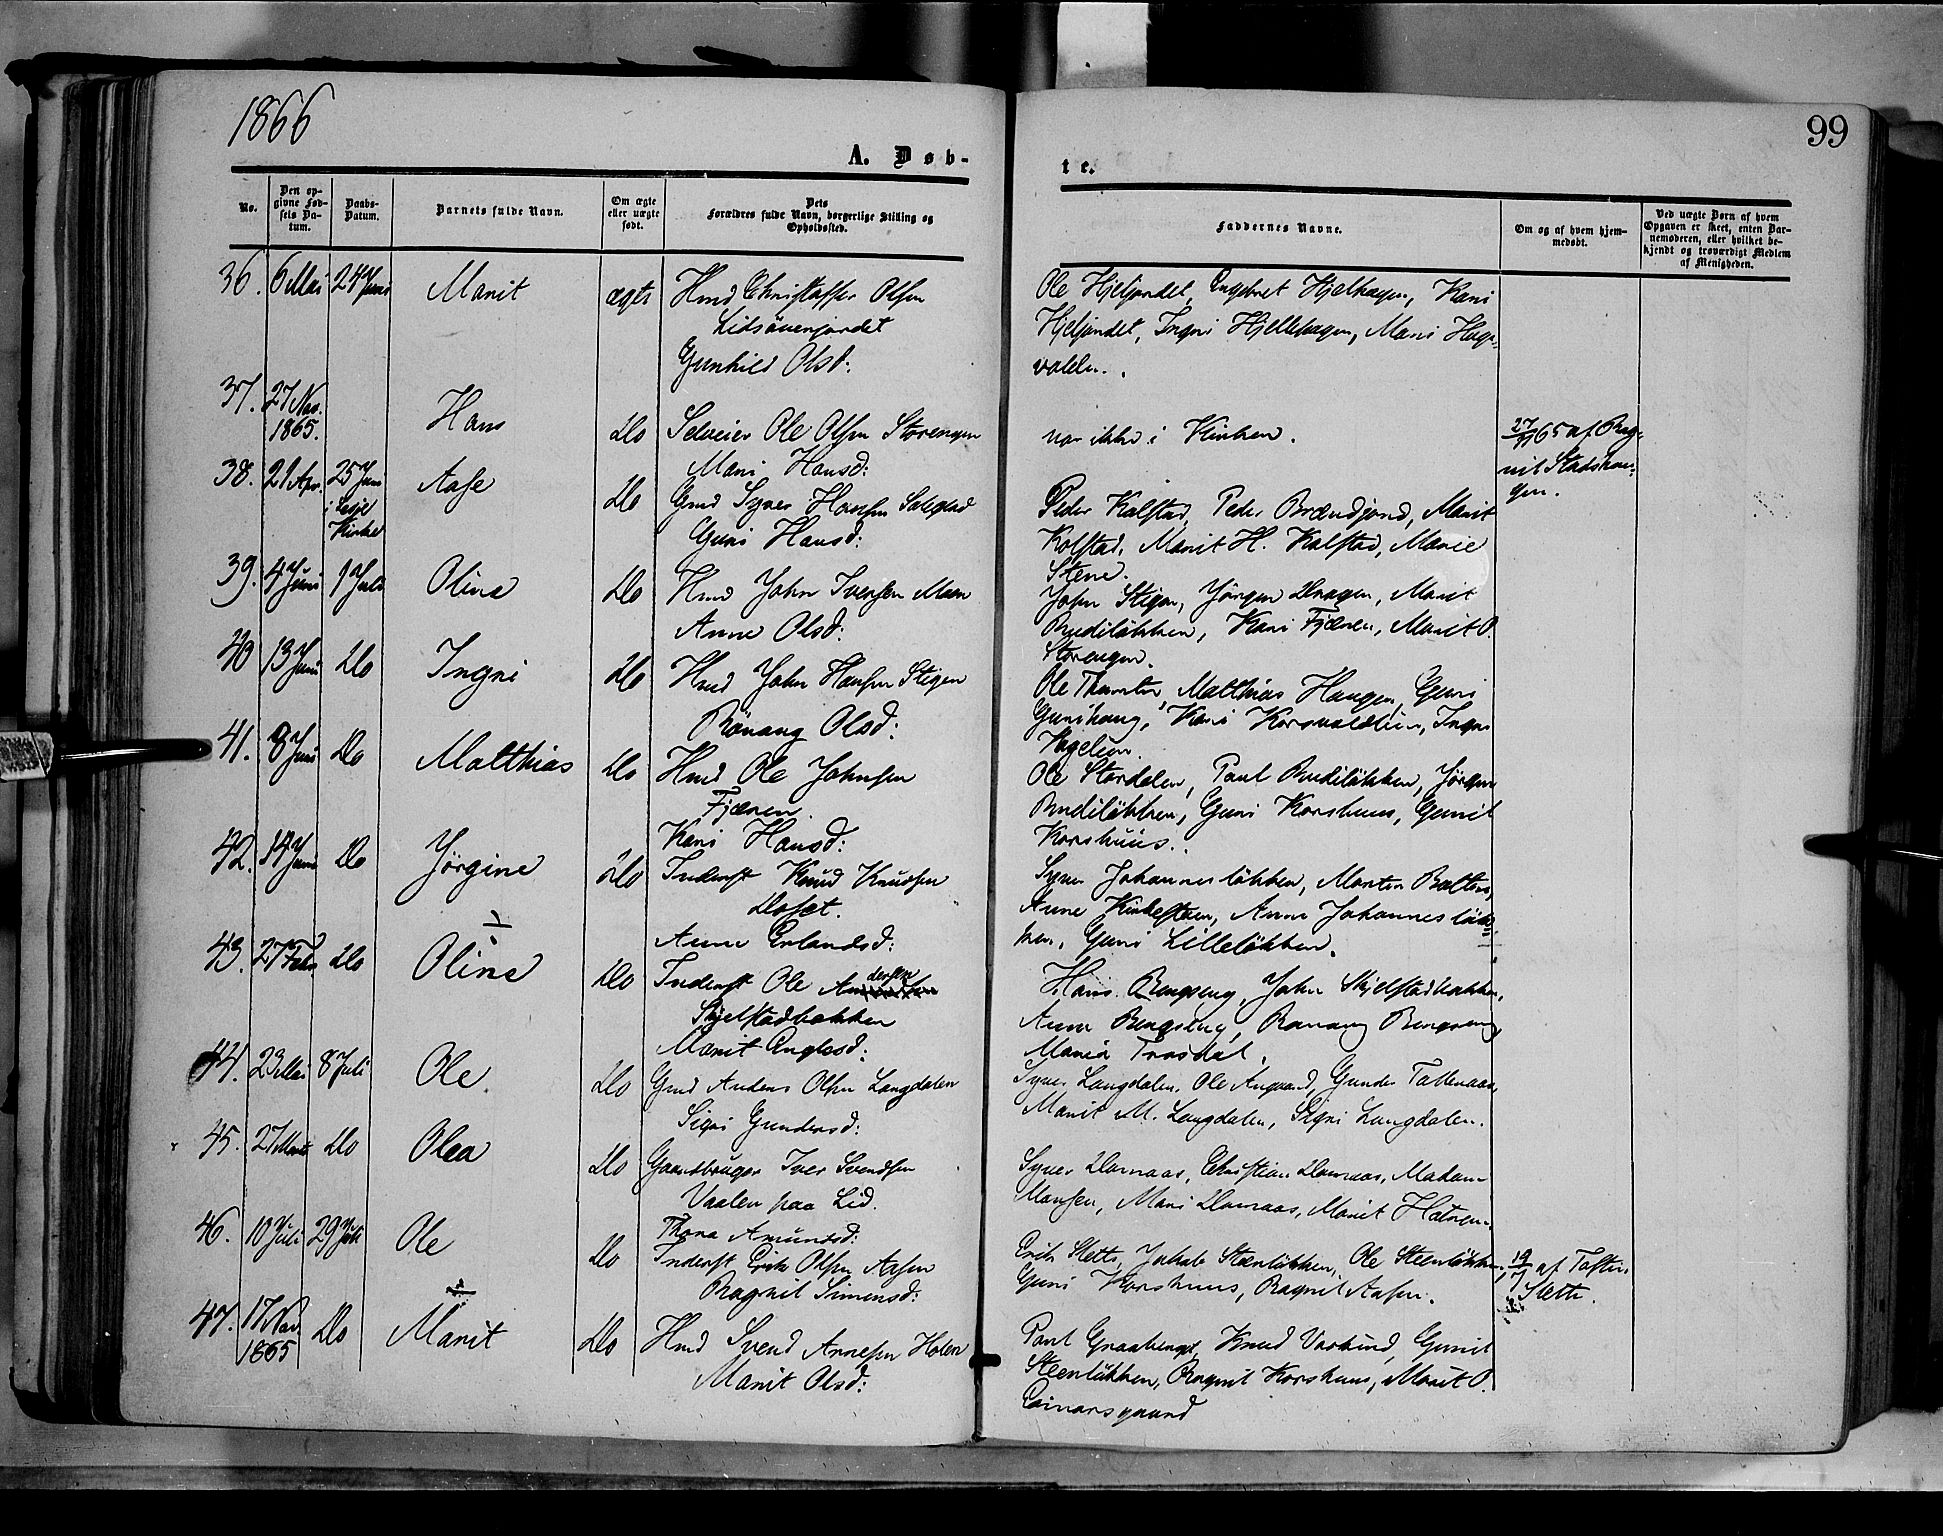 1866
99
A. Døb-
te.
No.
Den opgivne Fødsels Datum.
Daabs-Datum.
Barnets fulde Navn.
Om ægte eller uægte født.
Dets Forældres fulde Navn, borgerlige Stilling og Opholdssted.
Faddernes Navne.
Om og af hvem hjemmedøbt.
Ved uægte Børn af hvem Opgaven er skeet, enten Barnemoderen, eller hvilket bekjendt og troværdigt Medlem af Menigheden.
36. 6 Mai 24 Juni Marit ægte Hmd Christoffer Olsen
Lidsøuenjordet
Gunhild Olsd:
Ole Hjeljordet, Engebret Hjelhagen, Kari
Hjeljordet, Ingri Hjellehagen, Mari Hage-
volden.
37. 27 Nov. 1865. Hans Do Selveier Ole Olsen Storengen
Mari Hansd:
var ikke i Kirken.
27/11 65 af Rag-
nil Stadshau-
gen.
38. 21 Apr. 25 Juni i Lesje Kirke Aase Do Gmd Syver Hansen
Guri Hansd:
Peder Kolstad, Peder Brændjord, Marit
Kolstad, Marit H. Kolstad, Marie
Stene.
39. 4 Juni 1 Juli Oline Do Hmd John Iversen Moen
Anne Olsd:
John Stigen, Jörgen Dragen, Marit
Rudiløkken, Kari Fjæren, Marit O.
Storengen.
40 13 Juni Do Ingri Do Hmd John Hansen Stigen
Rönaug Olsd:
Ole Matthias Haugen, Guri
Gunihaug, Kari Korsvoldlien, Ingri
41. 8 Juni Do Matthias Do Hmd Ole Johnsen
Fjæren.
Kari Hansd:
Ole Stordalen, Paul Rudiløkken, Jörgen
Rudiløkken, Guri Korshuus, Gunil
Korshuus.
42. 14 Juni Do Jørgine Do Inderst Knud Knudsen
Doset.
Anne Erlandsd:
Syver Johannesløkken, Morten
Anne Kirkestuen, Anne Johannesløk-
ken, Guri Lilleløkken.
43. 27 Febr. Do Oline Do Inderst Ole Andersen
Skjelstadbakken
Marit Englesd:
Hans Bergseng, John Skjelstadbakken,
Anne Bergseng, Rønnaug Bergseng
Maria Trosdal.
44. 23 Mai 8 Juli Ole Do Gmd Anders Olsen Langdalen
Sigri Gundersd:
Syver Langdalen, Ole Angvard, Gunder
Marit M. Langdalen, Sigri Langdalen.
45. 27 Marts Do Olea Do Gaardbruger Iver Svendsen
Vaalen paa Lid.
Thora Amundsd:
Syver Domaas, Christian Domaas, Madam
Mari Domaas, Marit
46. 10 Juli 29 Juli Ole Do Inderst Erik Olsen Aasen
Ragnil Simensd:
Erik Slette, Jakob Steenløkken, Ole Steenløkken,
Guri Korshuus, Ragnil Aasen.
af
Slette.
47. 17 Nov. 1865 Do Marit Do Hmd Svend Arnesen Holen
Marit Olsd:
Paul Graaberget, Knud Vorkind, Gunil
Steenløkken, Ragnil Korshuus, Marit O.
Einarsgaard